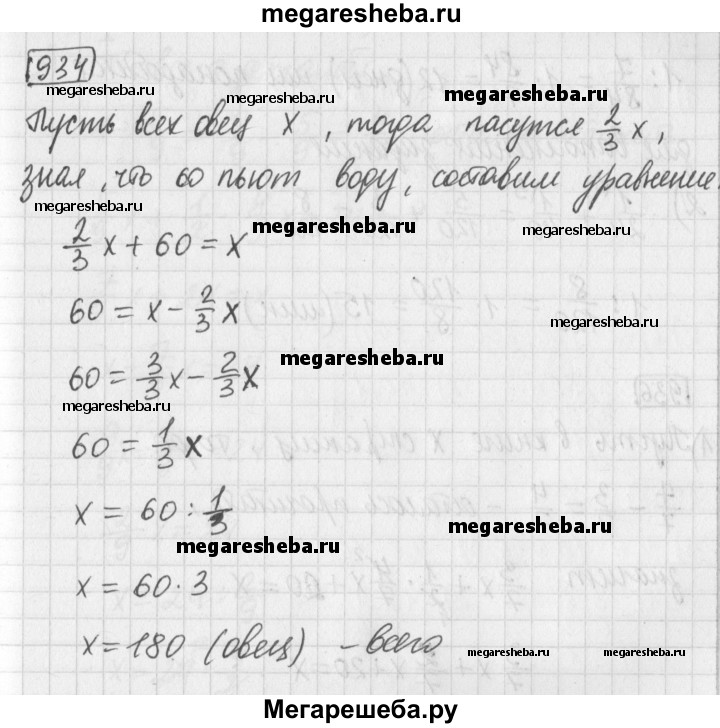 megaresheba.ru
934
megaresheba.ru megaresheba.ru megaresheba.ru
Пусть всех овец x, тогда пасутся 2/3 x,
зная, что 60 пьют воду, составим уравнение.
megaresheba.ru
2/3 x + 60 = x megaresheba.ru megaresheba.ru
60 = x - 2/3 x
megaresheba.ru
60 = 3/3 x - 2/3 x megaresheba.ru
megaresheba.ru
60 = 1/3 x
x = 60 : 1/3
megaresheba.ru
megaresheba.ru
x = 60 · 3
x = 180 (овец) - всего.
megaresheba.ru megaresheba.ru
Мегарешеба.ру